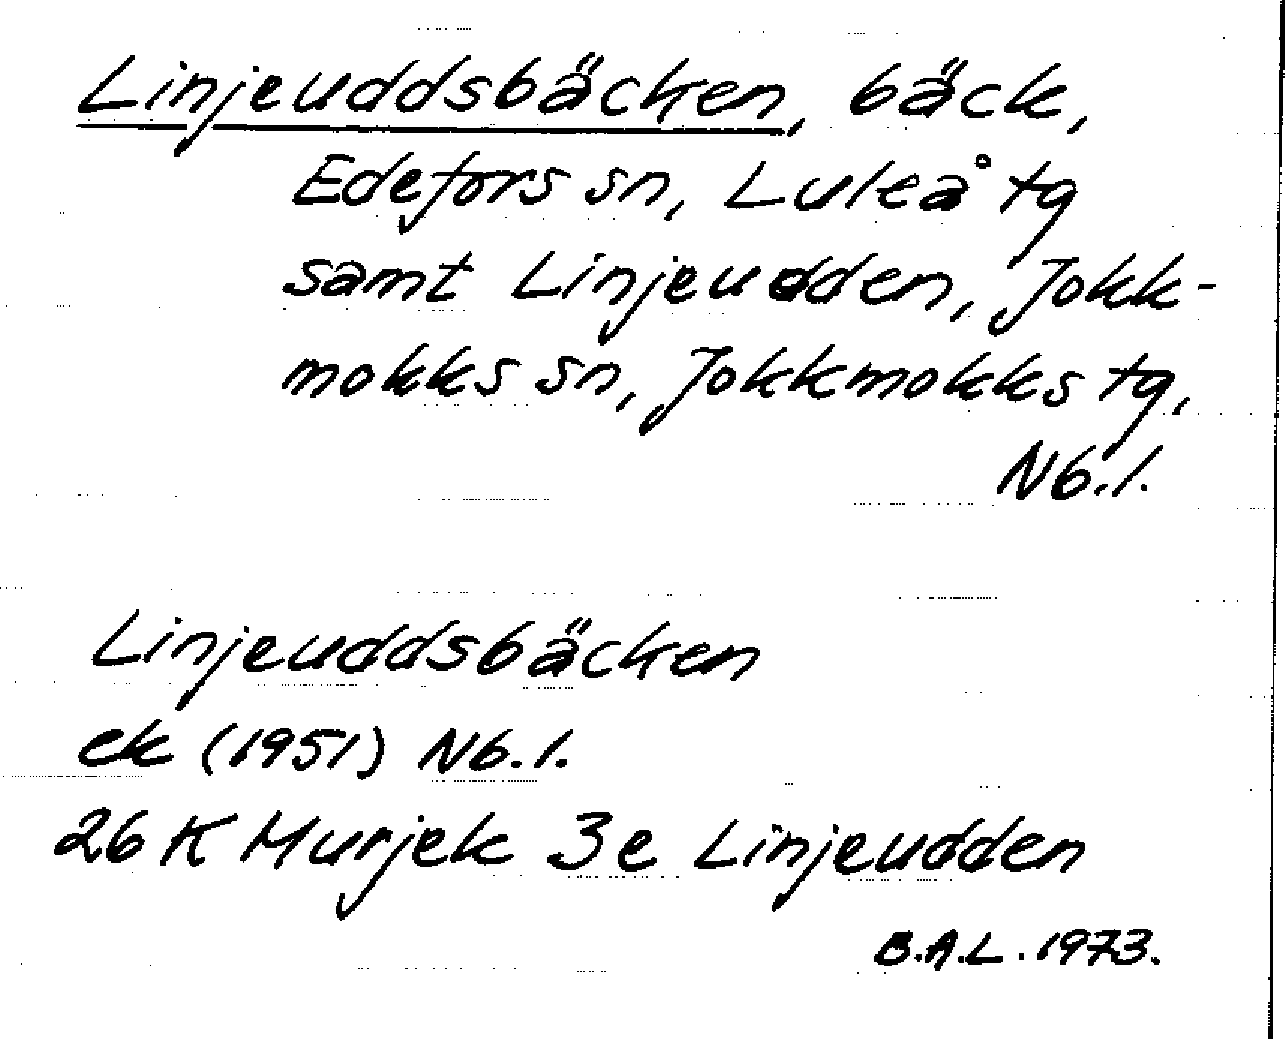 Linjeuddsbäcken, bäck,
Edefors sn, Luleå tg
samt Linjeudden, Jokk-
mokks sn, Jokkmokks tg,
Nb.l.
Linjeuddsbäcken
ek (1951) Nb.l.
26 K Murjek 3e Linjeudden
B.A.L. 1973.